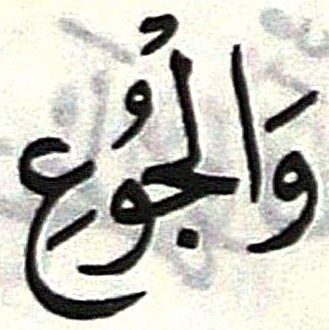 وَالْجُوُعِ